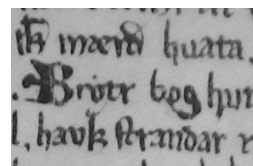 mærð huata.
Briotr beg hun
l, hauk strandar r